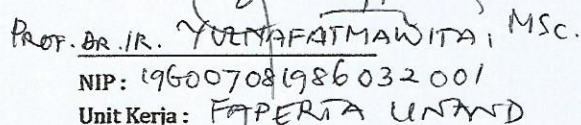 PROF. DR. IR. YULNAFATMAWITA, MSC.
NIP: 196007081986032001
Unit Kerja: FAPERTA UNAND